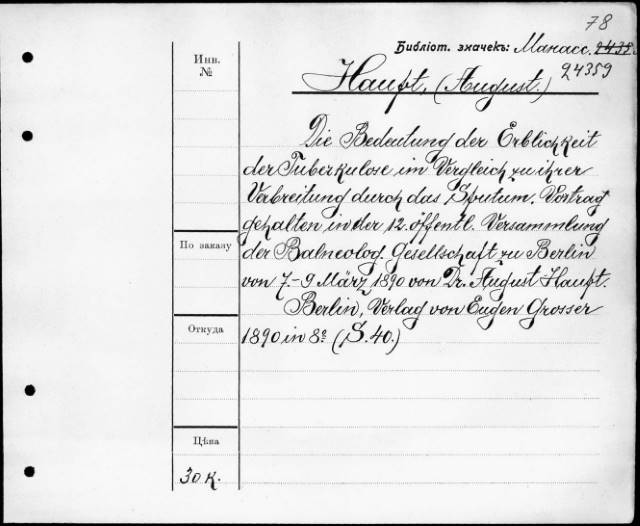 78
Библіот. значекъ: Манасс. 2435
24359
Инв.
№
Haupt, (August.)
Die Bedeutung der Erblichkeit
der Tuberkulose im Vergleich zu ihrer
Verbreitung durch das Sputum. Vortrag
gehalten in der 12. öffentl. Versammlung
der Balneolog. Gesellschaft zu Berlin
von 7.-9 März 1890 von Dr. August Haupt.
Berlin, Verlag von Eugen Grosser
1890 in 8º (S. 40.)
По заказу
Откуда
Цѣна
30 к.